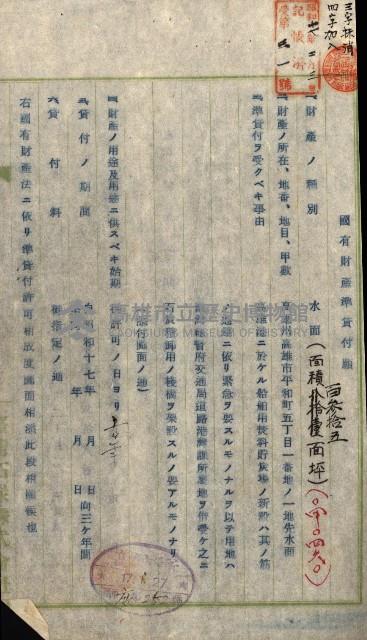 三字抹消
四字加入
國有財產準貸付願
一、財產ノ種別
水面（面積百參拾五面坪）（〇・〇四六〇）
二、財產ノ所在、地番、地目、甲數
高雄州高雄市平和町五丁目一番地ノ一地先水面
三、準貸付ヲ受クベキ事由
高雄港ニ於ケル船舶用燃料貯炭場ノ新設ハ其ノ筋
ノ通牒ニ依リ緊急ヲ要スルモノナルヲ以テ用地ハ
總督府交通局道路港灣課所屬地ヲ借受ケ之ニ
石炭積卸用ノ棧橋ヲ架設スルノ要アルモノナリ
（添付圖面ノ通）
四、財產ノ用途及用途ニ供スベキ始期
御許可ノ日ヨリ
五、貸付ノ期間
自昭和十七年 月 日向三ケ年間
年 月 日
六、貸付料
御指定ノ通
右國有財產法ニ依リ準貸付許可相成度圖面相添此段相願候也
高雄市立歷史博物館
KAOHSIUNG MUSEUM OF HISTORY